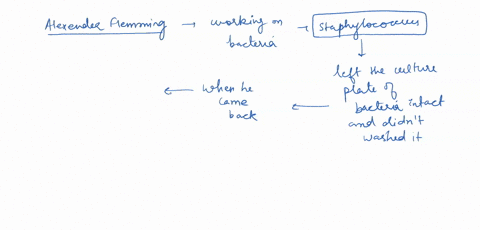 Alexender Flemming → working on
bacteria
→ Staphylococcus
↓
left the culture
plate of
bacteria intact
and didn't
washed it
← when he
came
back
←